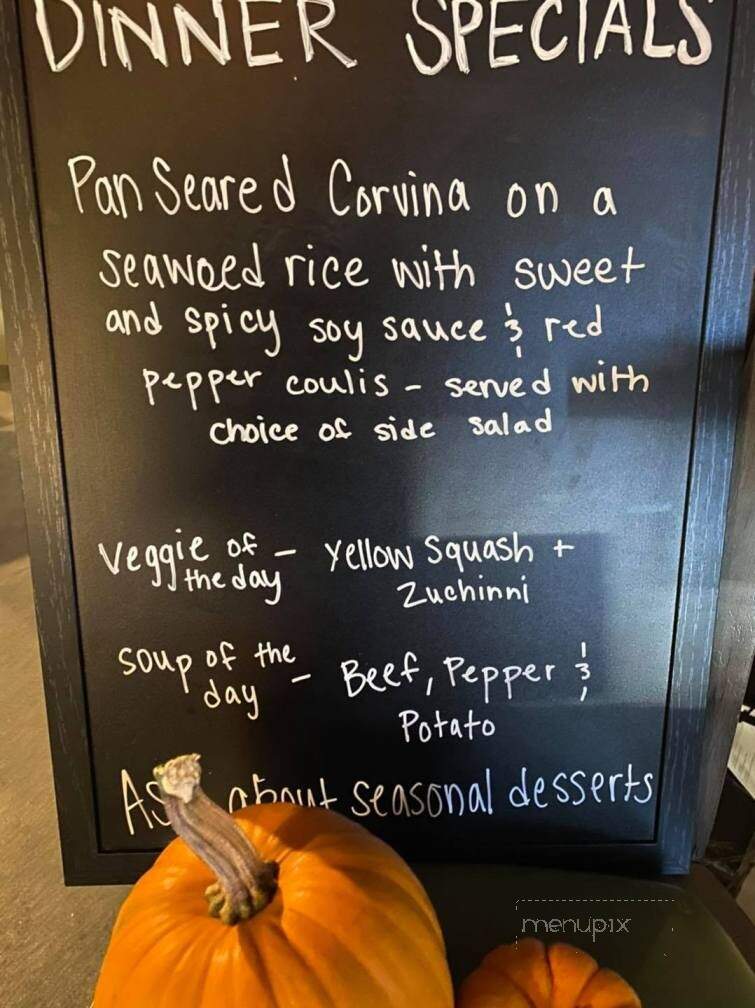 DINNER SPECIALS
Pan Seared Corvina on a
seaweed rice with sweet
and spicy soy sauce & red
pepper coulis - served with
choice of side salad
Veggie of the day - Yellow Squash +
Zuchinni
Soup of the day - Beef, Pepper &
Potato
about seasonal desserts
menupix